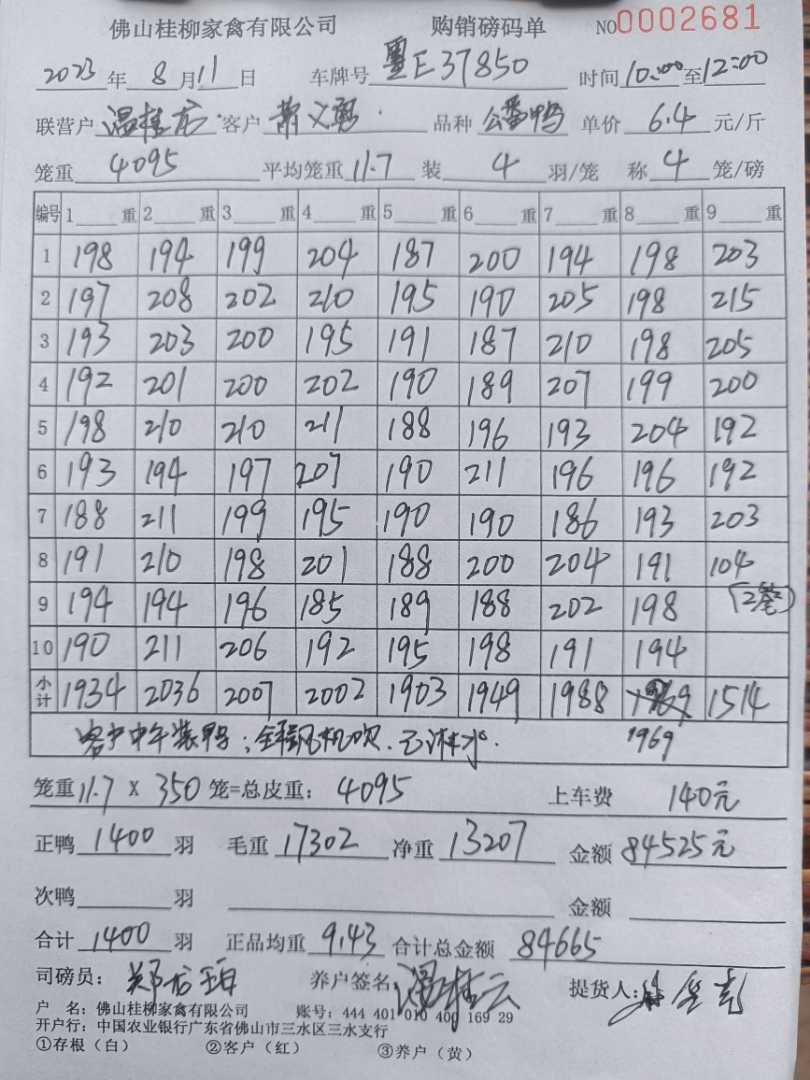 佛山桂柳家禽有限公司 购销磅码单 NO0002681
2023年8月11日 车牌号 粤E37850 时间10:00至12:00
联营户 温桂云 客户 萧义勇 品种 公番鸭 单价 6.4 元/斤
笼重 4095 平均笼重 11.7 装 4 羽/笼 称 4 笼/磅
编号 1 重 2 重 3 重 4 重 5 重 6 重 7 重 8 重 9 重
1 198 194 199 204 187 200 194 198 203
2 197 208 202 210 195 190 205 198 215
3 193 203 200 195 191 187 210 198 205
4 192 201 200 202 190 189 207 199 200
5 198 210 210 211 188 196 193 204 192
6 193 194 197 207 190 211 196 196 192
7 188 211 199 195 190 190 186 193 203
8 191 210 198 201 188 200 204 191 104
9 194 194 196 185 189 188 202 198 (2笼)
10 190 211 206 192 195 198 191 194
小计 1934 2036 2007 2002 1903 1949 1988 1514
客户中午装鸭;全程风机吹.已淋水. 1969
笼重11.7 X 350 笼=总皮重: 4095 上车费 140元
正鸭 1400 羽 毛重 17302 净重 13207 金额 84525元
次鸭 羽 金额
合计 1400 羽 正品均重 9.43 合计总金额 84665
司磅员: 养户签名: 温桂云 提货人:
户 名: 佛山桂柳家禽有限公司 账号: 444 401 010 400 169 29
开户行: 中国农业银行广东省佛山市三水区三水支行
①存根(白) ②客户(红) ③养户(黄)